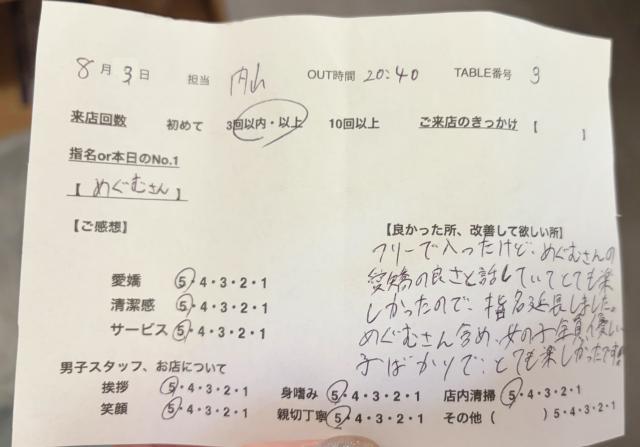 8月3日 担当 内山 OUT時間 20:40 TABLE番号 3
来店回数 初めて 3回以内・以上 10回以上 ご来店のきっかけ【 】
指名or本日のNo.1
【 めぐむさん 】
【ご感想】
愛嬌 5・4・3・2・1
清潔感 5・4・3・2・1
サービス 5・4・3・2・1
【良かった所、改善して欲しい所】
フリーで入ったけど、めぐむさんの
愛嬌の良さと話していてとても楽
しかったので、指名延長しました。
めぐむさん含め、女の子全員優しい
子ばかりで、とても楽しかったです!!
男子スタッフ、お店について
挨拶 5・4・3・2・1 身嗜み 5・4・3・2・1 店内清掃 5・4・3・2・1
笑顔 5・4・3・2・1 親切丁寧 5・4・3・2・1 その他( )5・4・3・2・1